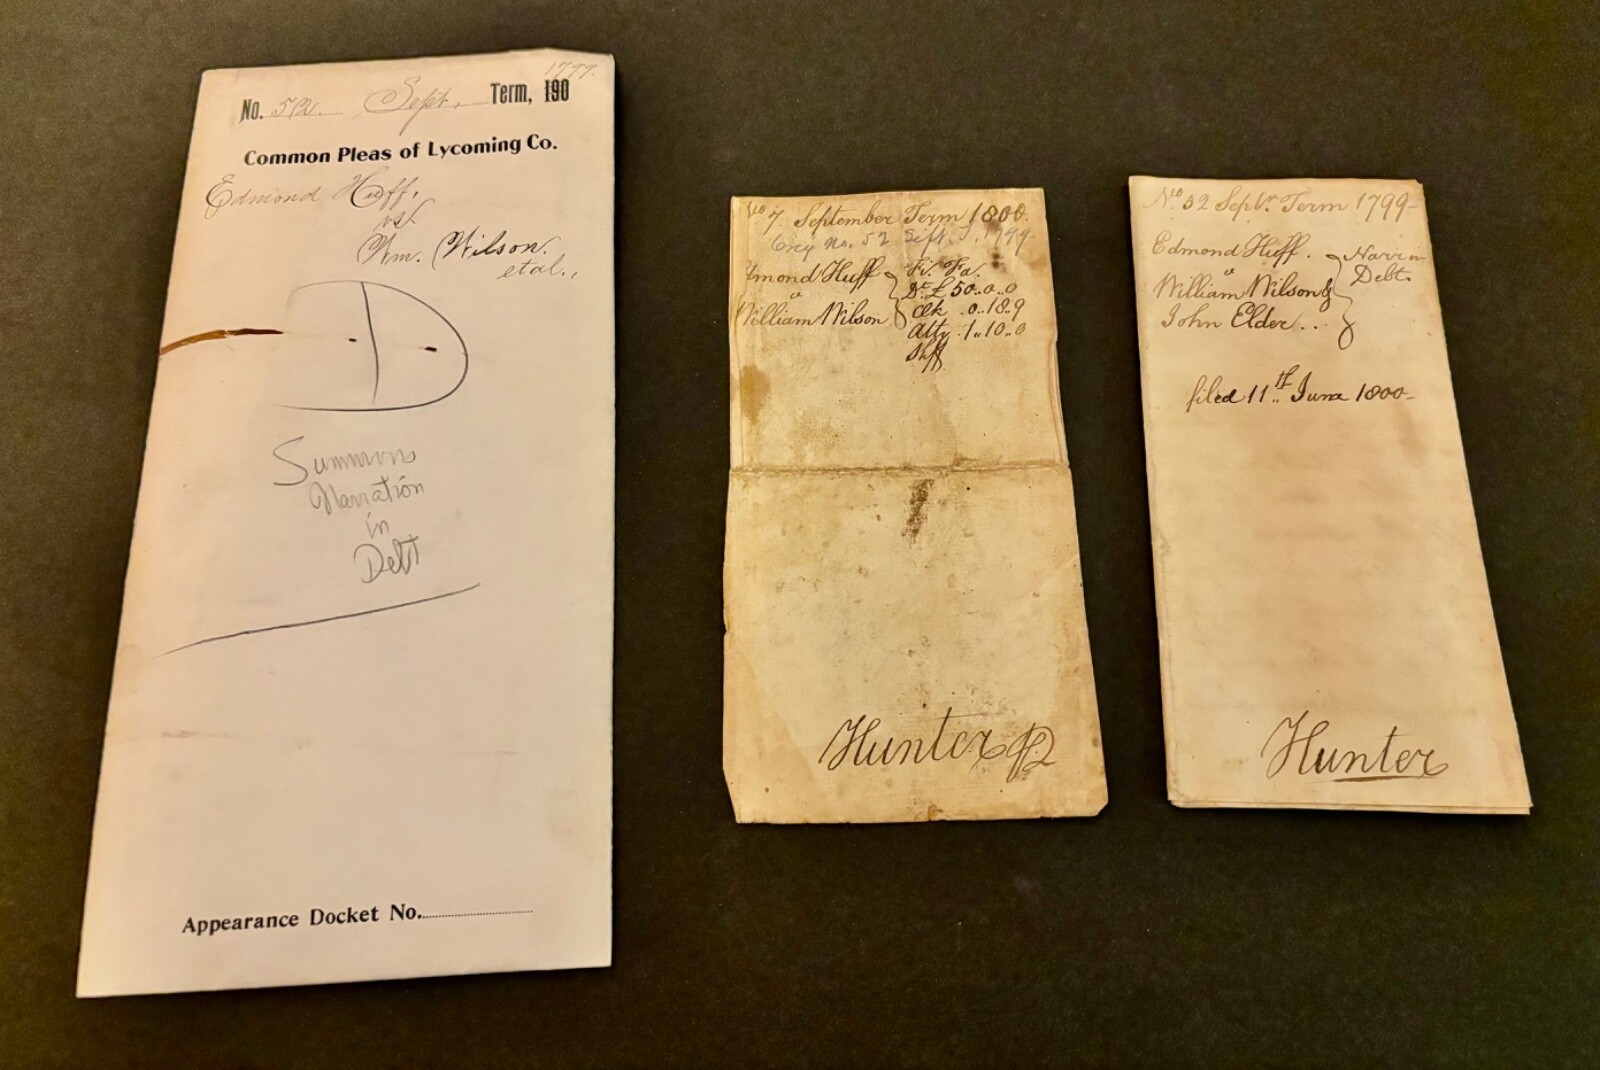 1799.
No. 52 Sept. Term, 190
Common Pleas of Lycoming Co.
Edmond Huff,
vs.
Wm. Wilson.
et al.,
D
Summons
Narration
in
Debt
Appearance Docket No.
No 7. September Term 1800.
No. 52 Sept. 1799
Edmond Huff Fi. Fa.
Dt £ 50..0..0
William Wilson Clk .0..18..9
Atty 1..10..0
Shff
Hunter
No. 52 Septr. Term 1799-
Edmond Huff. Narr in
Debt.
William Wilson &
John Elder..
filed 11th June 1800-
Hunter